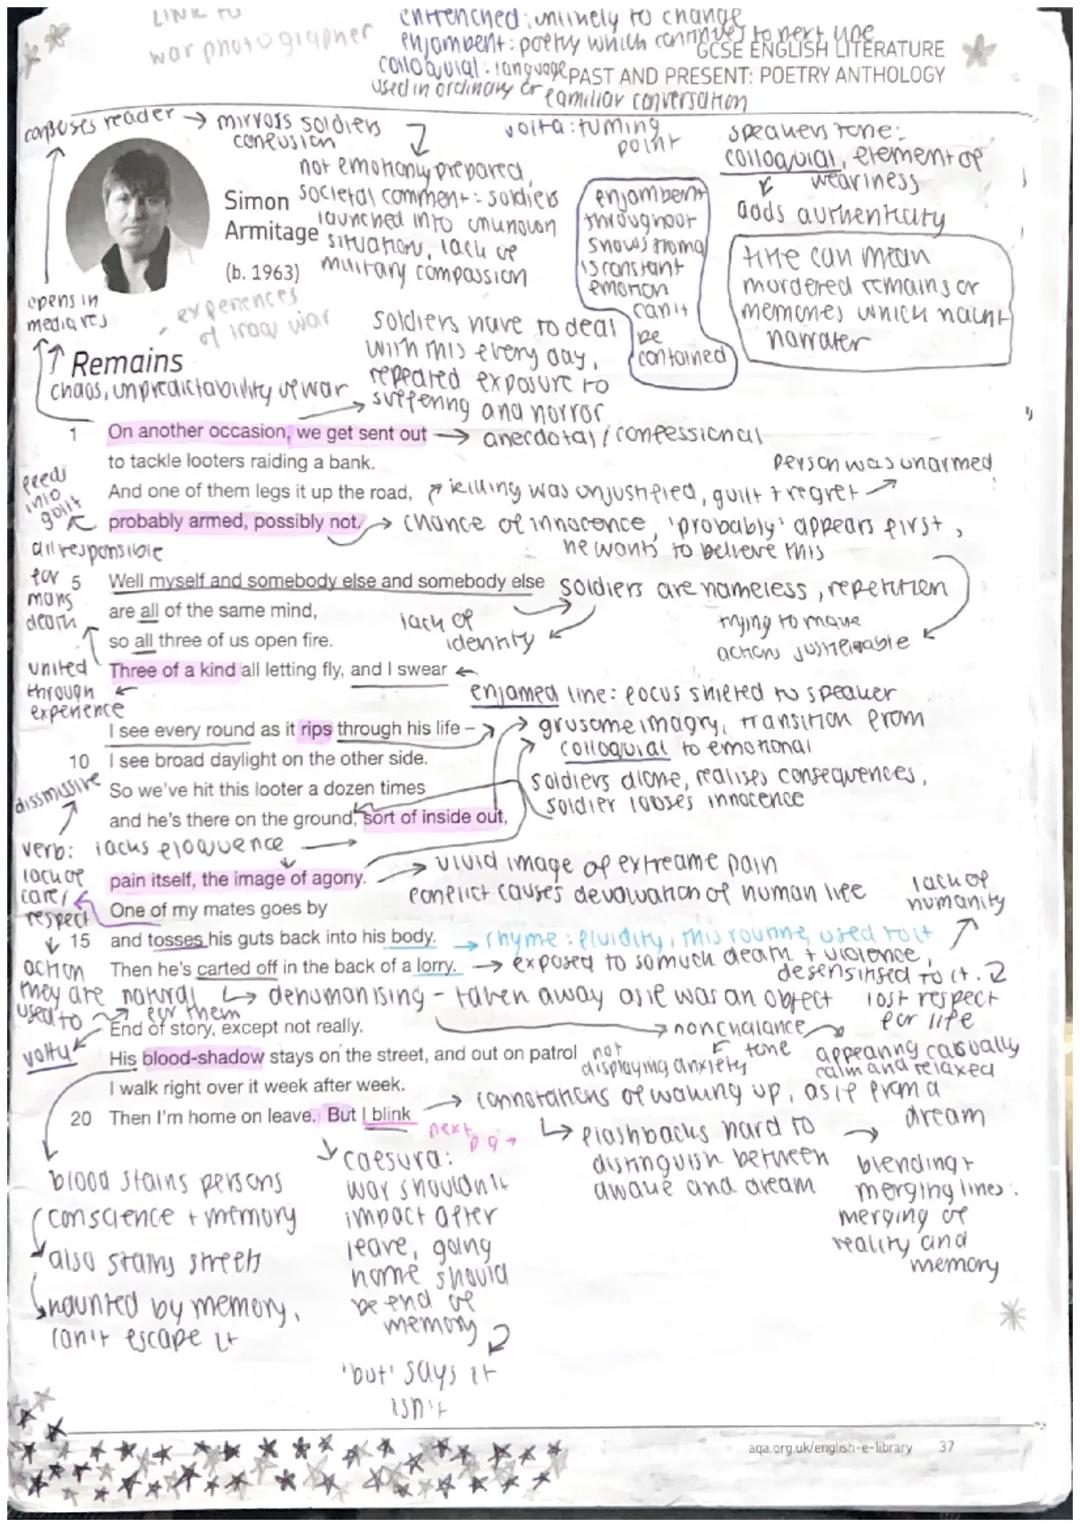 LINK TO
war photographer
entrenched: unlikely to change
enjambent: poetry which continues to next line
GCSE ENGLISH LITERATURE
colloquial: language
PAST AND PRESENT: POETRY ANTHOLOGY
used in ordinary or familiar conversation
confuses reader → mirrors soldiers
confusion
not emotionally prepared,
societal comment: soldiers
launched into unknown
situations, lack of
military compassion
volta: turning
point
speakers tone:
colloquial, element of
weariness
adds authenticity
enjambent
throughout
shows trauma
is constant
emotion
can't
be
contained
title can mean
murdered remains or
memories which haunt
narrater
Simon
Armitage
(b. 1963)
opens in
media res
experiences
of iraq war
Remains
chaos, unpredictability of war
soldiers have to deal
with this every day,
repeated exposure to
suffering and horror
1 On another occasion, we get sent out → anecdotal / confessional
to tackle looters raiding a bank.
person was unarmed
And one of them legs it up the road,
killing was unjustified, guilt + regret
feeds
into
guilt
probably armed, possibly not.
→ chance of innocence, 'probably' appears first,
he wants to believe this
all responsible
for
mans
death
5 Well myself and somebody else and somebody else
soldiers are nameless, repetition
are all of the same mind,
lack of
identity
trying to make
action justifiable
so all three of us open fire.
united
through
experience
Three of a kind all letting fly, and I swear
enjamed line: focus shifted to speaker
I see every round as it rips through his life –
→ grusome imagry, transition from
colloquial to emotional
10 I see broad daylight on the other side.
soldiers alone, realises consequences,
soldier looses innocence
dissmissive
So we've hit this looter a dozen times
and he's there on the ground, sort of inside out,
verb: lacks eloquence
lack of
care/
respect
pain itself, the image of agony.
→ vivid image of extreame pain
conflict causes devaluation of human life
lack of
humanity
One of my mates goes by
15 and tosses his guts back into his body.
→ rhyme: fluidity, this routine, used to it
action
Then he's carted off in the back of a lorry.
→ exposed to so much death + violence,
desensitised to it.
they are
used to
natural
for them
dehumanising - taken away as if was an object
lost respect
for life
End of story, except not really.
→ nonchalance
tone
not
displaying anxiety
appearing casually
calm and relaxed
His blood-shadow stays on the street, and out on patrol
I walk right over it week after week.
→ connotations of waking up, as if from a
dream
20 Then I'm home on leave. But I blink
next
pg →
flashbacks hard to
distinguish between
awake and dream
blending +
merging lines:
merging of
reality and
memory
blood stains persons
conscience + memory
also stains street
haunted by memory,
can't escape it
caesura:
war shouldn't
impact after
leave, going
home should
be end of
memory
'but' says it
isn't
aqa.org.uk/english-e-library 37